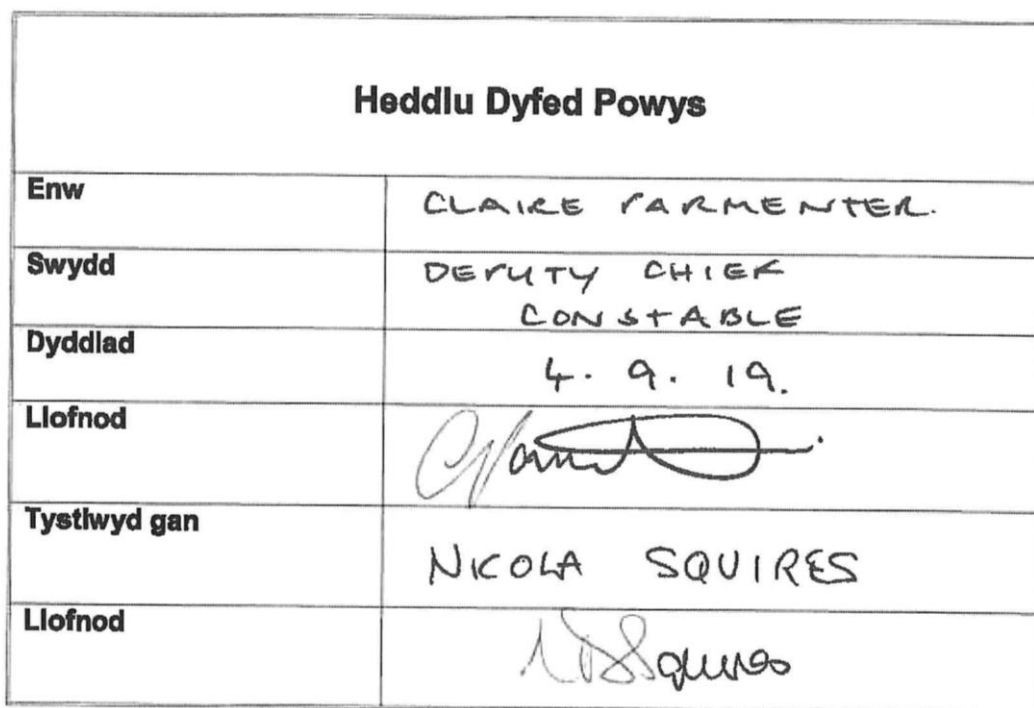 Heddlu Dyfed Powys
Enw
CLAIRE PARMENTER.
Swydd
DEPUTY CHIEF
CONSTABLE
Dyddiad
4. 9. 19.
Llofnod
Tystiwyd gan
NICOLA SQUIRES
Llofnod
NSSquires